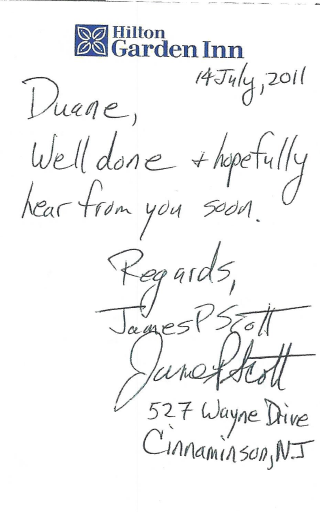 Hilton
Garden Inn
14 July, 2011
Duane,
Well done + hopefully
hear from you soon.
Regards,
James P Scott
James P Scott
527 Wayne Drive
Cinnaminson, NJ